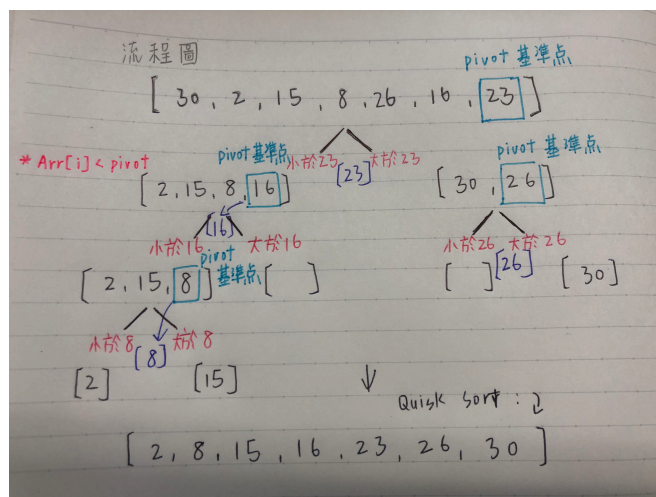 流程圖
pivot 基準点
[ 30, 2, 15, 8, 26, 16, 23 ]
* Arr[i] < pivot
pivot 基準点
小於23 [23] 大於23
pivot 基準点
[ 2, 15, 8, 16 ]
[ 30, 26 ]
小於16 [16] 大於16
小於26 [26] 大於26
pivot 基準点
[ 2, 15, 8 ] [ ]
[ ] [ 30 ]
小於8 [8] 大於8
[2] [15]
Quisk sort : ↓
[ 2, 8, 15, 16, 23, 26, 30 ]